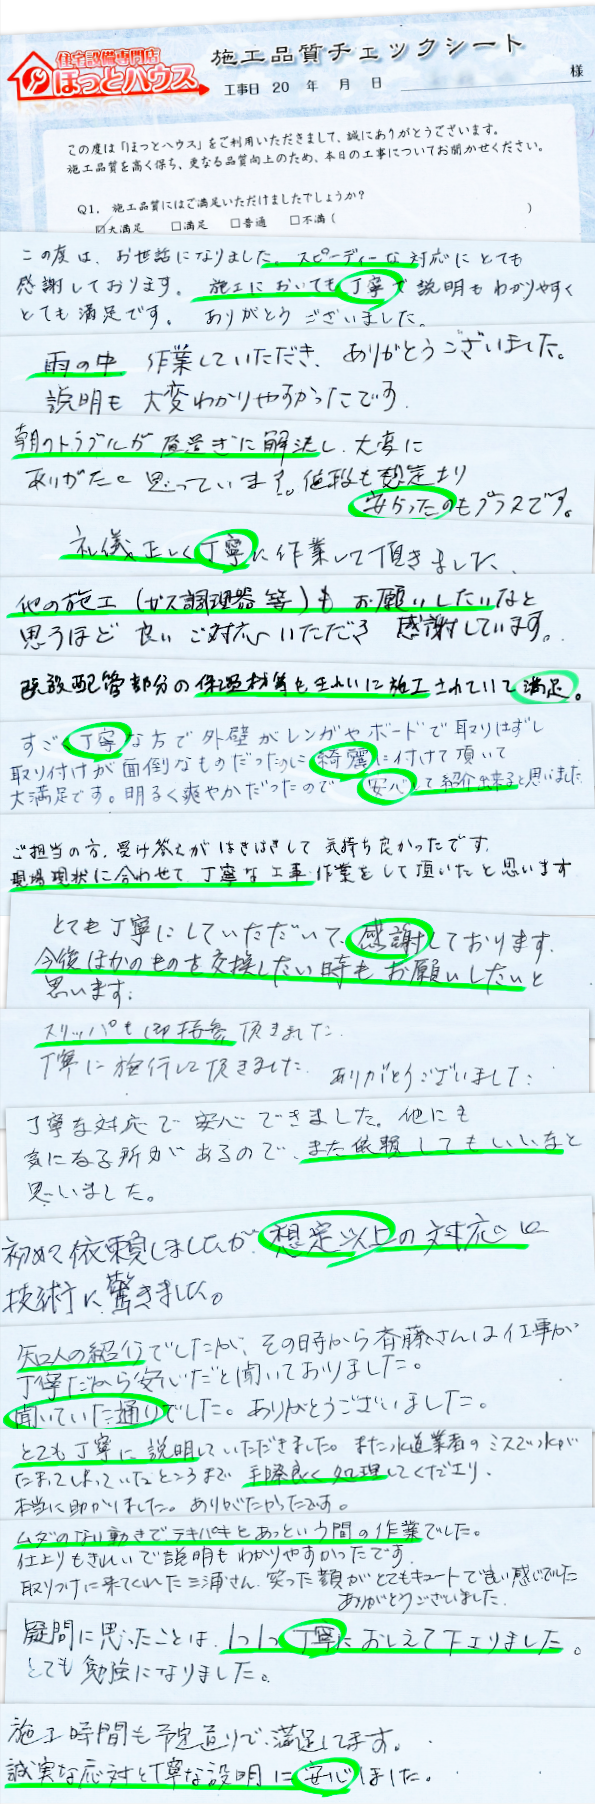 住宅設備専門店
ほっとハウス
施工品質チェックシート
工事日 20 年 月 日
様
この度は「ほっとハウス」をご利用いただきまして、誠にありがとうございます。
施工品質を高く保ち、更なる品質向上のため、本日の工事についてお聞かせください。
Q1. 施工品質にはご満足いただけましたでしょうか?
☑大満足 □満足 □普通 □不満( )
この度は、お世話になりました。スピーディーな対応にとても
感謝しております。施工においても丁寧で説明もわかりやすく
とても満足です。ありがとうございました。
雨の中、作業していただき、ありがとうございました。
説明も大変わかりやすかったです。
朝のトラブルが昼過ぎに解決し、大変に
ありがたく思っています。値段も想定より
安かったのもプラスです。
礼儀正しく丁寧に作業して頂きました、
他の施工(ガス調理器等)もお願いしたいなと
思うほど良いご対応いただき感謝しています。
既設配管部分の保温材等もきれいに施工されていて満足。
すごく丁寧な方で外壁がレンガやボードで取りはずし
取り付けが面倒なものだったのに綺麗に付けて頂いて
大満足です。明るく爽やかだったので安心して紹介出来ると思いました
ご担当の方、受け答えがはきはきして気持ち良かったです。
現場現状に合わせて丁寧な工事・作業をして頂いたと思います
とても丁寧にしていただいて、感謝しております。
今後ほかのものを交換したい時もお願いしたいと
思います。
スリッパも御持参頂きました。
丁寧に施行して頂きました。ありがとうございました。
丁寧な対応で安心できました。他にも
気になる所があるので、また依頼してもいいなと
思いました。
初めて依頼しましたが、想定以上の対応に
技術に驚きました。
知人の紹介でしたが、その時から斉藤さんは仕事が
丁寧だから安心だと聞いておりました。
聞いていた通りでした。ありがとうございました。
とても丁寧に説明していただきました。また水道業者のミスで水が
たまってしまっていたところまで手際良く処理してくださり、
本当に助かりました。ありがたかったです。
ムダのない動きでテキパキとあっという間の作業でした。
仕上りもきれいで説明もわかりやすかったです。
取りつけに来てくれた三浦さん、笑った顔がとてもキュートで良い感じでした
ありがとうございました。
疑問に思ったことは、1つ1つ丁寧におしえて下さりました。
とても勉強になりました。
施工時間も予定通りで、満足してます。
誠実な応対と丁寧な説明に安心しました。